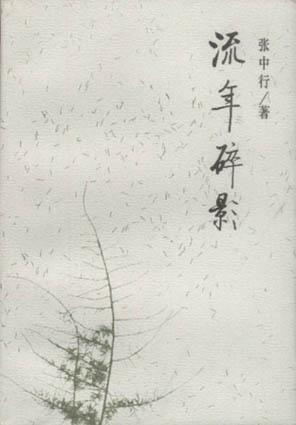 流年碎影
张中行/著